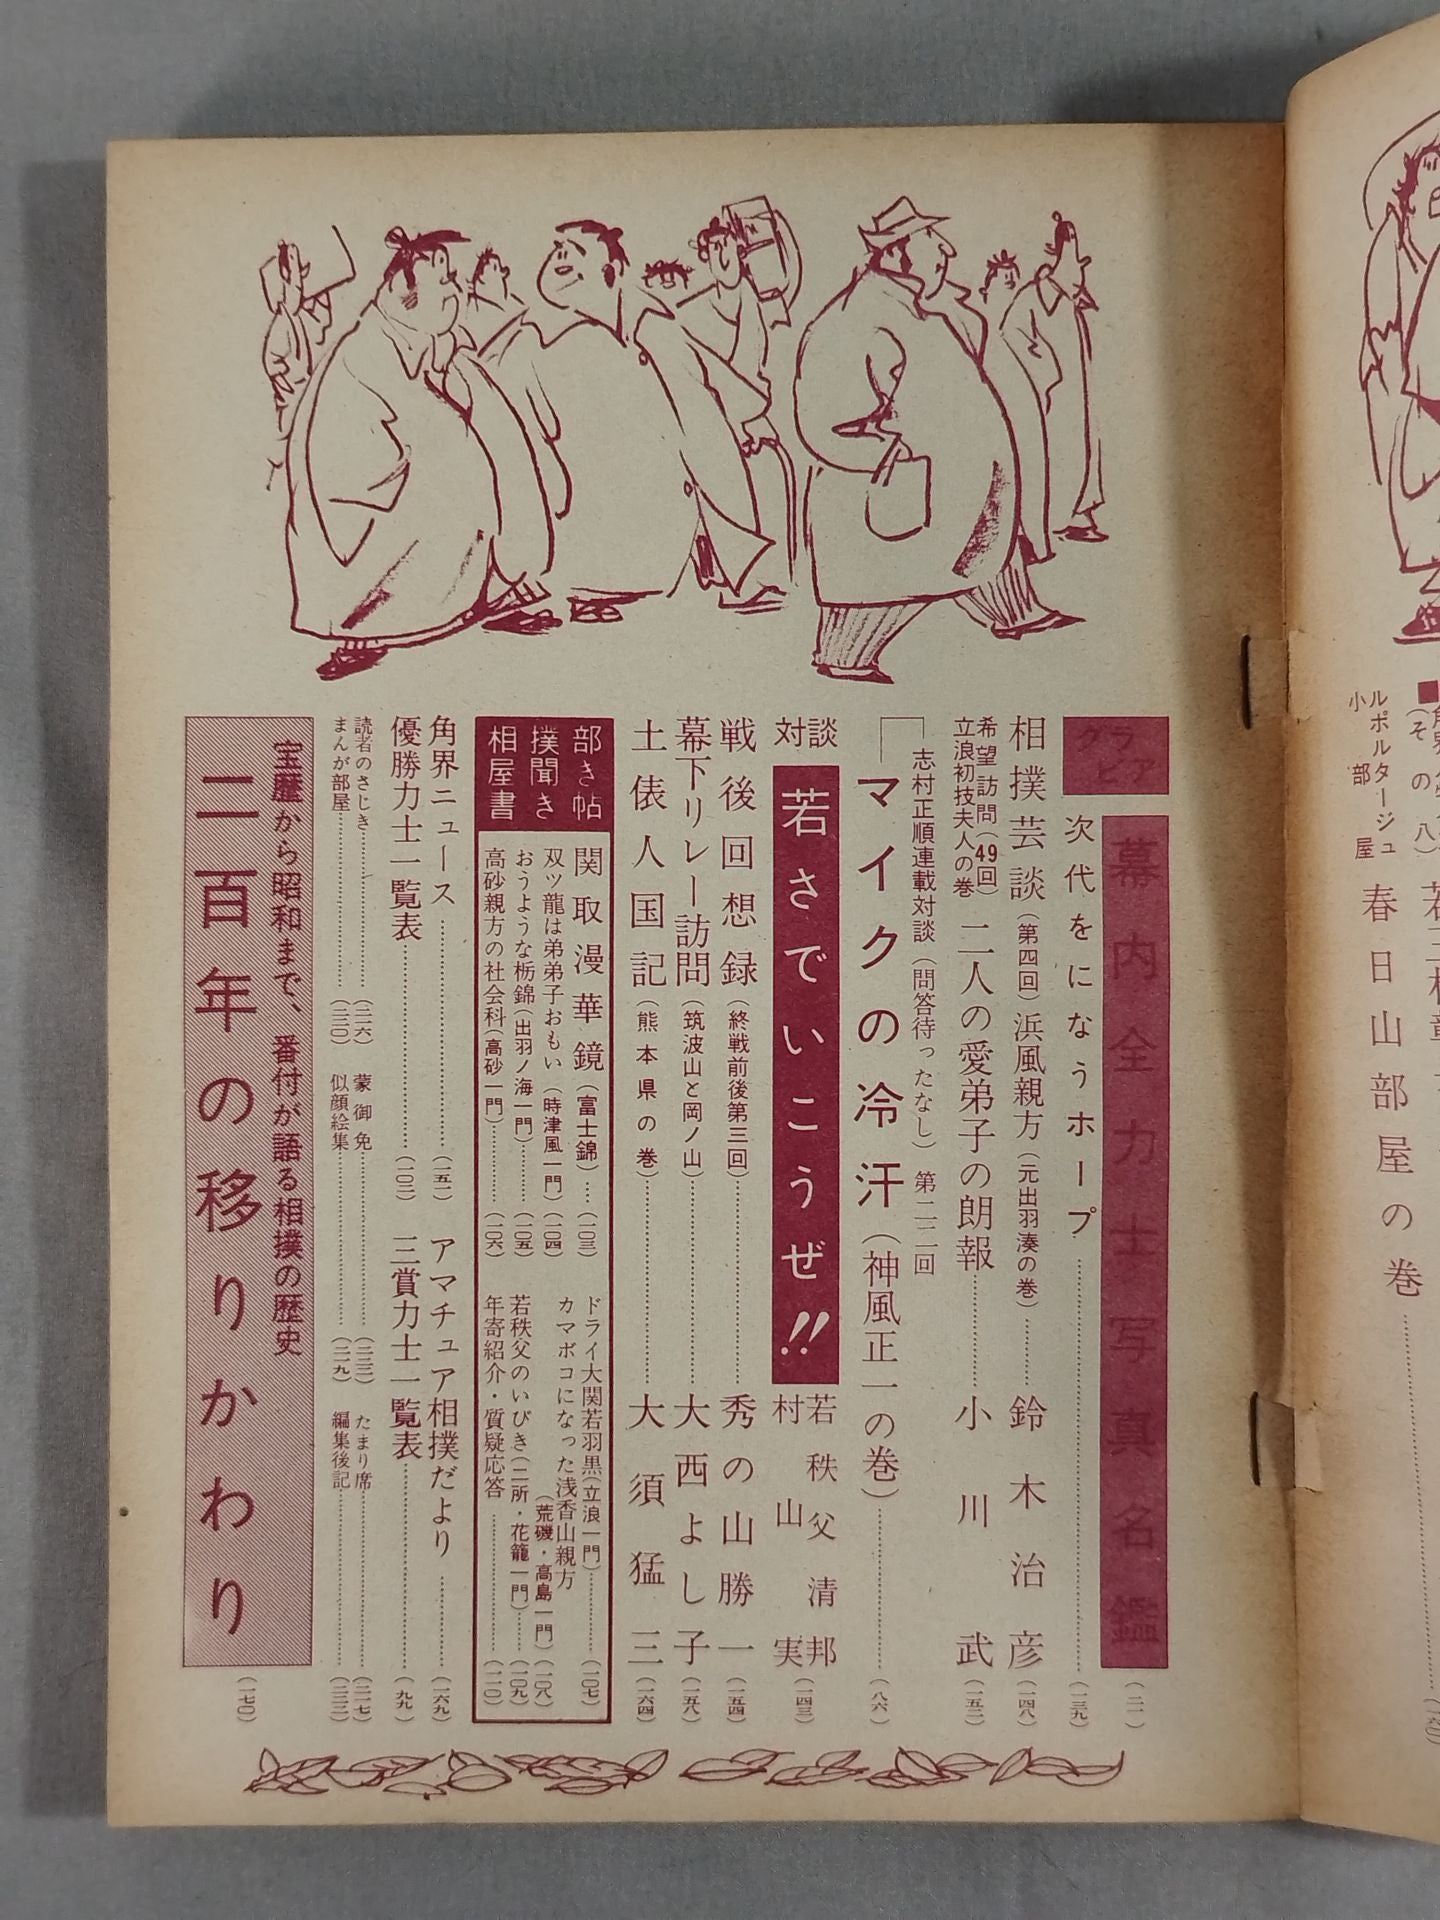 グラビア
幕内全力士写真名鑑
(二一)
次代をになうホープ
(一三九)
相撲芸談(第四回)浜風親方(元出羽湊の巻)
鈴木治彦
(一四八)
希望訪問(49回)
立浪初技夫人の巻
二人の愛弟子の朗報
小川武
(一五二)
志村正順連載対談(問答待ったなし)第二二回
マイクの冷汗(神風正一の巻)
(八六)
対談
若さでいこうぜ!!
若秩父清邦
村山実
(一四三)
戦後回想録(終戦前後第三回)
秀の山勝一
(一五四)
幕下リレー訪問(筑波山と岡ノ山)
大西よし子
(一五八)
土俵人国記(熊本県の巻)
大須猛三
(一六四)
相撲部屋聞き書き帖
関取漫華鏡(富士錦)
(一〇三)
双ツ龍は弟弟子おもい(時津風一門)
(一〇四)
おうような栃錦(出羽ノ海一門)
(一〇五)
高砂親方の社会科(高砂一門)
(一〇六)
ドライ大関若羽黒(立浪一門)
(一〇七)
カマボコになった浅香山親方
(荒磯・高島一門)
(一〇八)
若秩父のいびき(二所・花籠一門)
(一〇九)
年寄紹介・質疑応答
(一一〇)
角界ニュース
(一五一)
アマチュア相撲だより
(一六九)
優勝力士一覧表
(一〇二)
三賞力士一覧表
(九九)
読者のさじき
(二二六)
蒙御免
(二二三)
たまり席
(二一七)
まんが部屋
(二二〇)
似顔絵集
(二一九)
編集後記
(二三二)
宝暦から昭和まで、番付が語る相撲の歴史
二百年の移りかわり
(一七〇)
ルポルタージュ
小部屋
春日山部屋の巻